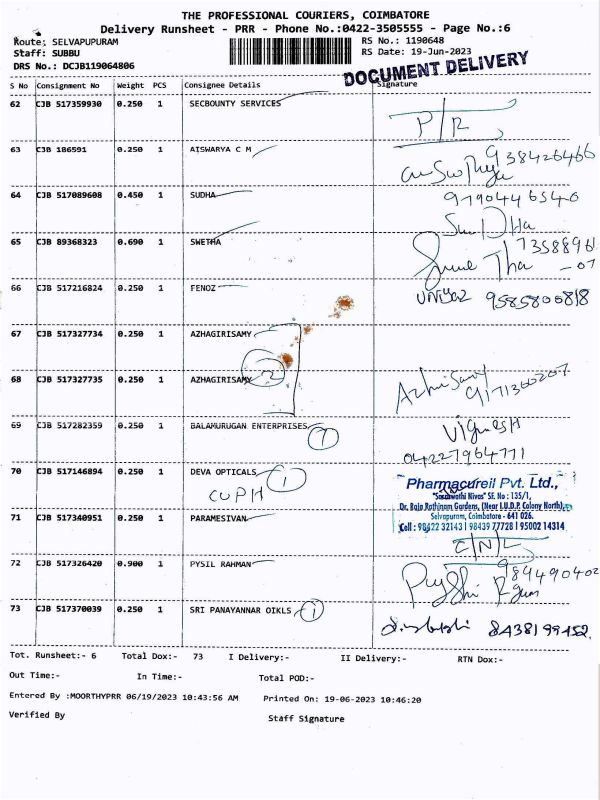 THE PROFESSIONAL COURIERS, COIMBATORE
Delivery Runsheet - PRR - Phone No.:0422-3505555 - Page No.:6
Route: SELVAPUPURAM RS No.: 1190648
Staff: SUBBU RS Date: 19-Jun-2023
DRS No.: DCJB119064806 DOCUMENT DELIVERY
S No Consignment No Weight PCS Consignee Details Signature
62 CJB 517359930 0.250 1 SECBOUNTY SERVICES P/R
63 CJB 186591 0.250 1 AISWARYA C M 938426466
64 CJB 517089608 0.450 1 SUDHA 9790446540
SunDHa
65 CJB 89368323 0.690 1 SWETHA 7358896
-07
66 CJB 517216824 0.250 1 FENOZ 9585800818
67 CJB 517327734 0.250 1 AZHAGIRISAMY
2
68 CJB 517327735 0.250 1 AZHAGIRISAMY 9171300207
69 CJB 517282359 0.250 1 BALAMURUGAN ENTERPRISES 7 Vignesh
04227964771
70 CJB 517146894 0.250 1 DEVA OPTICALS 1
CUPH
Pharmacureil Pvt. Ltd.,
"Saraswathi Nivas" SF. No : 135/1,
Dr. Raja Rathinam Gardens, (Near I.U.D.P. Colony North),
Selvapuram, Coimbatore - 641 026.
Cell : 98422 32143 | 98439 77728 | 95002 14314
71 CJB 517340951 0.250 1 PARAMESIVAN C/N/L
72 CJB 517326420 0.900 1 PYSIL RAHMAN 984490402
73 CJB 517370039 0.250 1 SRI PANAYANNAR OIKLS 1 8438199452
Tot. Runsheet:- 6 Total Dox:- 73 I Delivery:- II Delivery:- RTN Dox:-
Out Time:- In Time:- Total POD:-
Entered By :MOORTHYPRR 06/19/2023 10:43:56 AM Printed On: 19-06-2023 10:46:20
Verified By Staff Signature